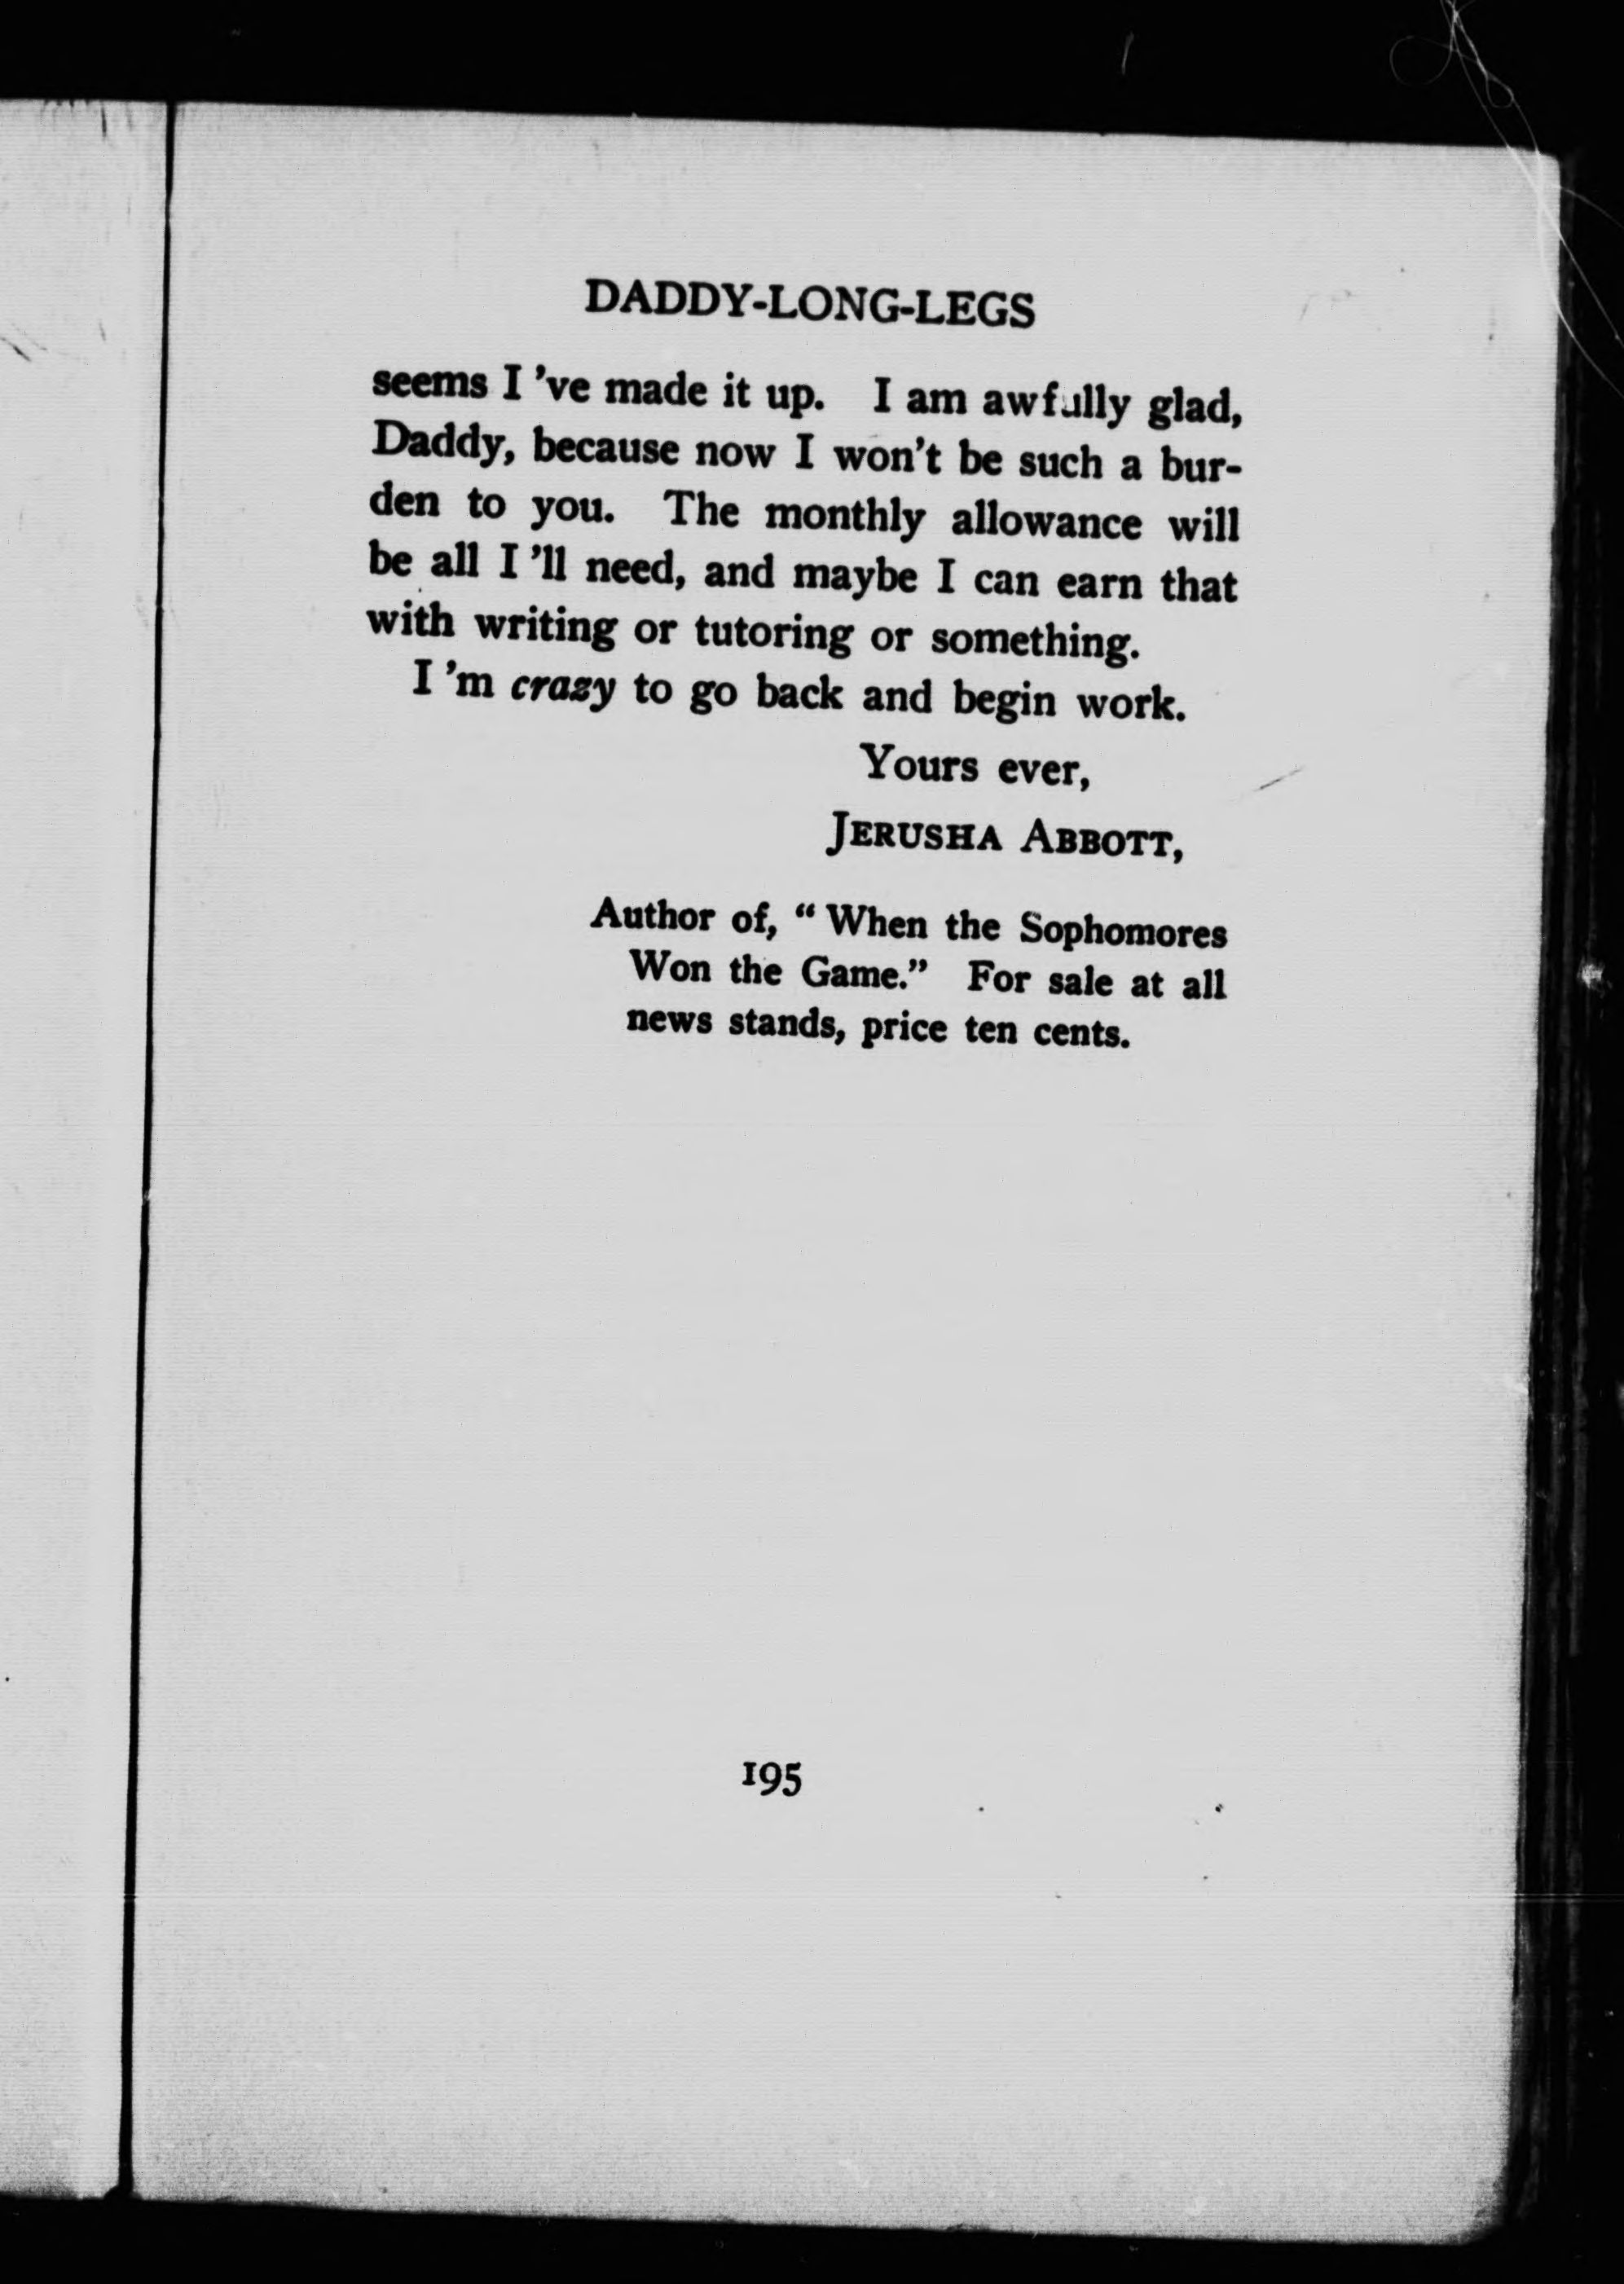 DADDY-LONG-LEGS
seems I 've made it up. I am awfully glad,
Daddy, because now I won't be such a bur-
den to you. The monthly allowance will
be all I 'll need, and maybe I can earn that
with writing or tutoring or something.
I 'm crazy to go back and begin work.
Yours ever,
JERUSHA ABBOTT,
Author of, “ When the Sophomores
Won the Game.” For sale at all
news stands, price ten cents.
195